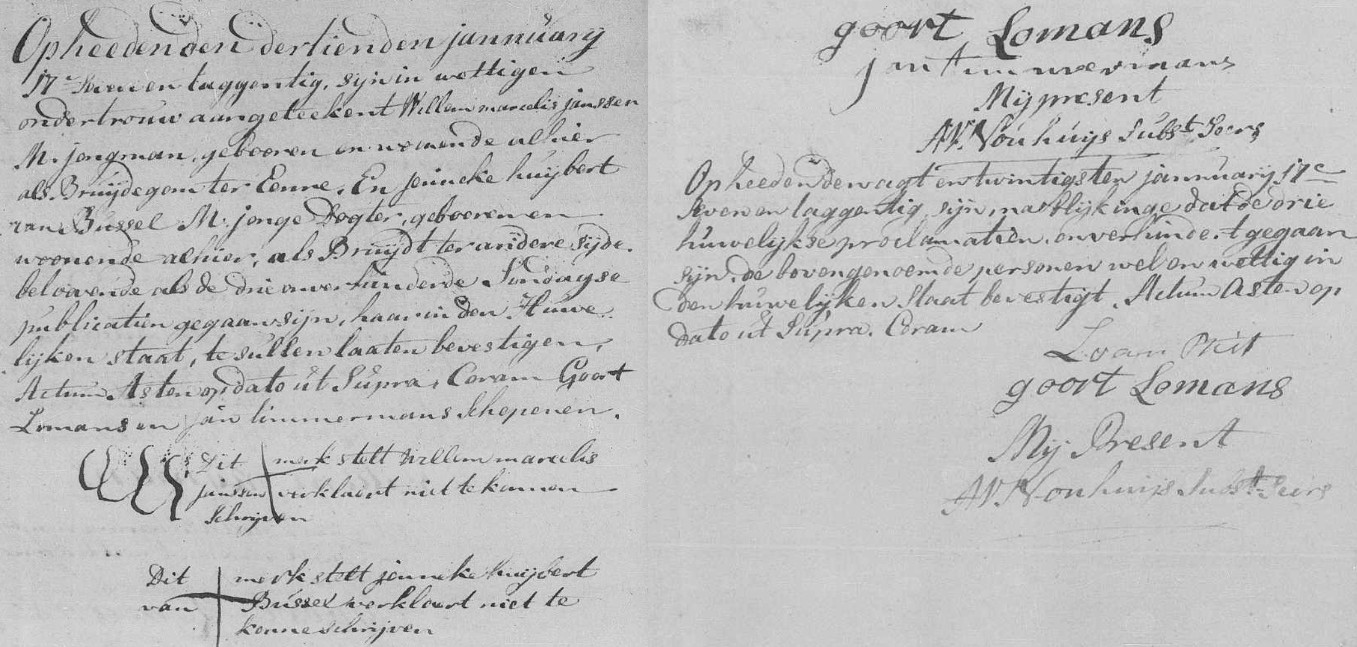 Op heeden den dertienden jannuarÿ
17c Seven en taggentig, sijn in wettigen
ondertrouw aangeteekent Willem marcelis janssen
M. jongman, gebooren en wonende alhier
als Bruijdegom ter Eenre, En jenneke huijbert
van Bussel M. jonge Dogter, gebooren en
woonende alhier, als Bruijdt ter andere sijde.
beloovende als de drie onverhinderde Sondagse
publicatien gegaan sijn, haar in den Huwe
lijken staat, te sullen laaten bevestigen,
Actum Asten op dato ut Supra, Coram Goort
Lomans en jan timmermans Schepenen.
Dit merk stelt Willem marcelis
janssen verklaert niet te konnen
schrijven
Dit merk stelt jenneke huijbert
van Bussel verklaert niet te
konne schrijven
goort Lomans
jan timmermans
Mij present
A.V. Nouhuijs Subst. Secrs
Op heeden den agt en twintigsten jannuarij 17c
Seven en taggentig, sijn, na blijk inge dat de drie
huwelijkse proclamatien onverhindert gegaan
sijn, de bovengenoemde personen wel en wettig in
den huwelijken Staat bevestigt, Actum Asten op
dato ut Supra. Coram
goort Lomans
Mij Present
A.V. Nouhuijs Subst. Secrs